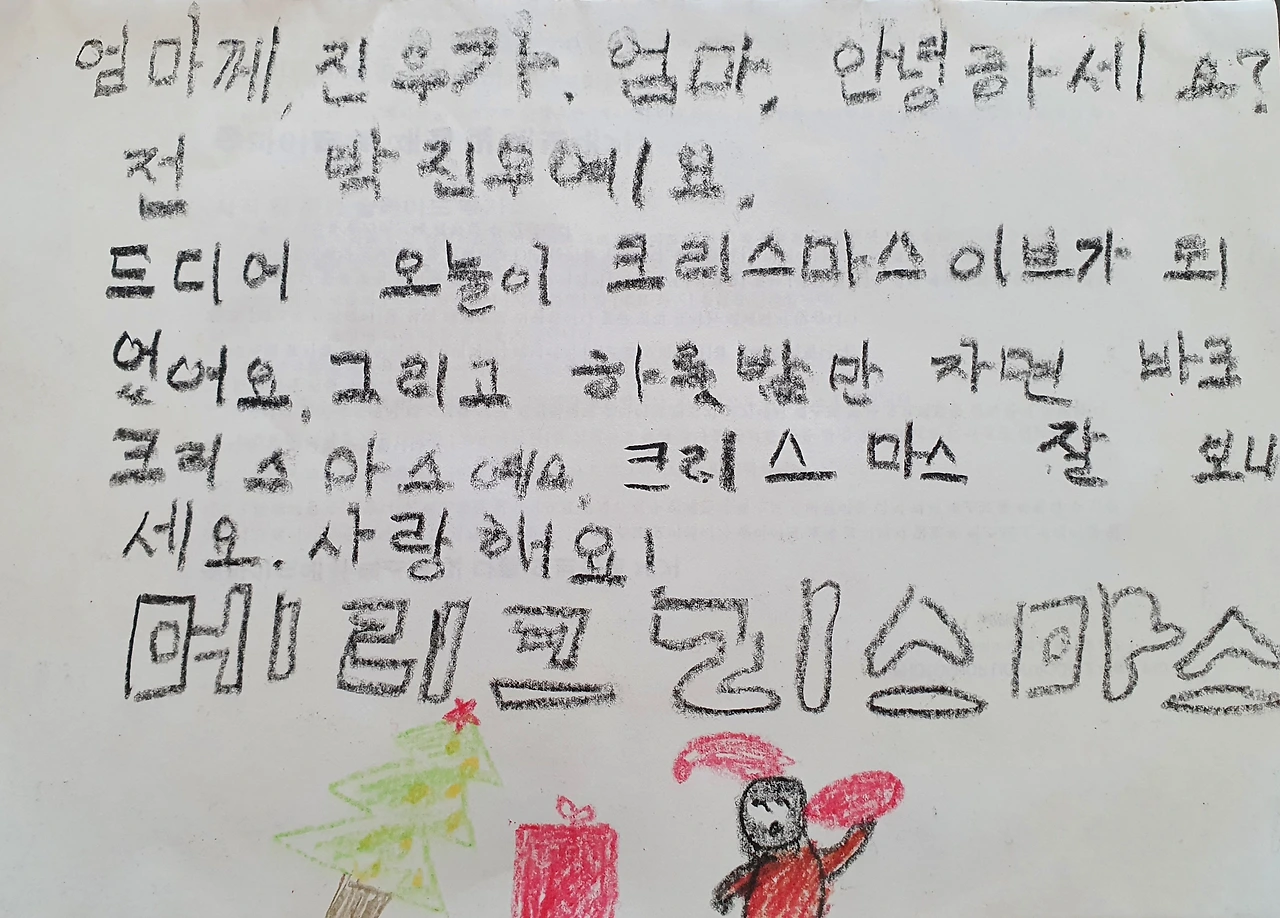 엄마께, 진우가. 엄마, 안녕하세요?
전 박진우예요.
드디어 오늘이 크리스마스이브가 되
었어요. 그리고 하룻밤만 자면 바로
크리스마스예요. 크리스마스 잘 보내
세요. 사랑해요!
메리크리스마스